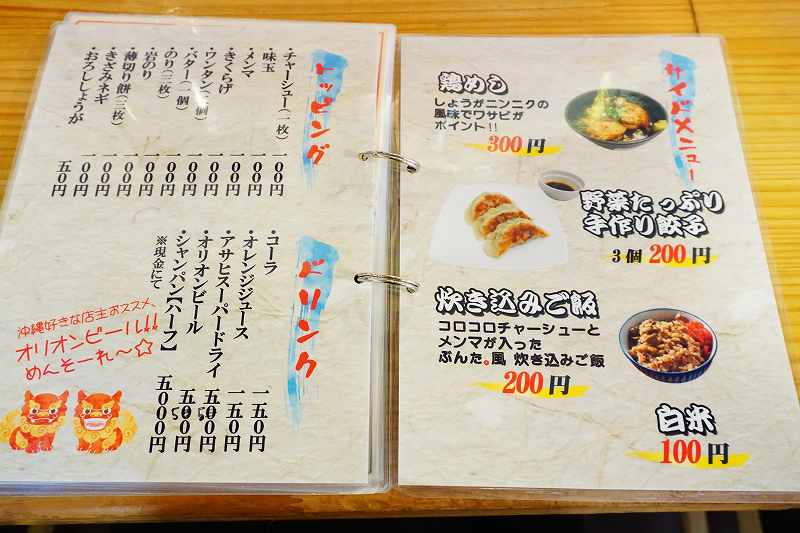 トッピング
・チャーシュー(一枚) 一00円
・味玉 一00円
・メンマ 一00円
・きくらげ 一00円
・ワンタン(二個) 一00円
・バター(一個) 一00円
・のり(三枚) 一00円
・岩のり 一00円
・薄切り餅(三枚) 一00円
・きざみネギ 一00円
・おろししょうが 五0円
ドリンク
・コーラ 一五0円
・オレンジジュース 一五0円
・アサヒスーパードライ 五
・オリオンビール 五
・シャンパン【ハーフ】 五000円
※現金にて
沖縄好きな店主おススメ、
オリオンビール!!
めんそーれ〜☆
サイドメニュー
鶏めし
しょうがニンニクの
風味でワサビが
ポイント!!
300円
野菜たっぷり
手作り餃子
3個 200円
炊き込みご飯
コロコロチャーシューと
メンマが入った
ぶんた。風 炊き込みご飯
200円
白米
100円